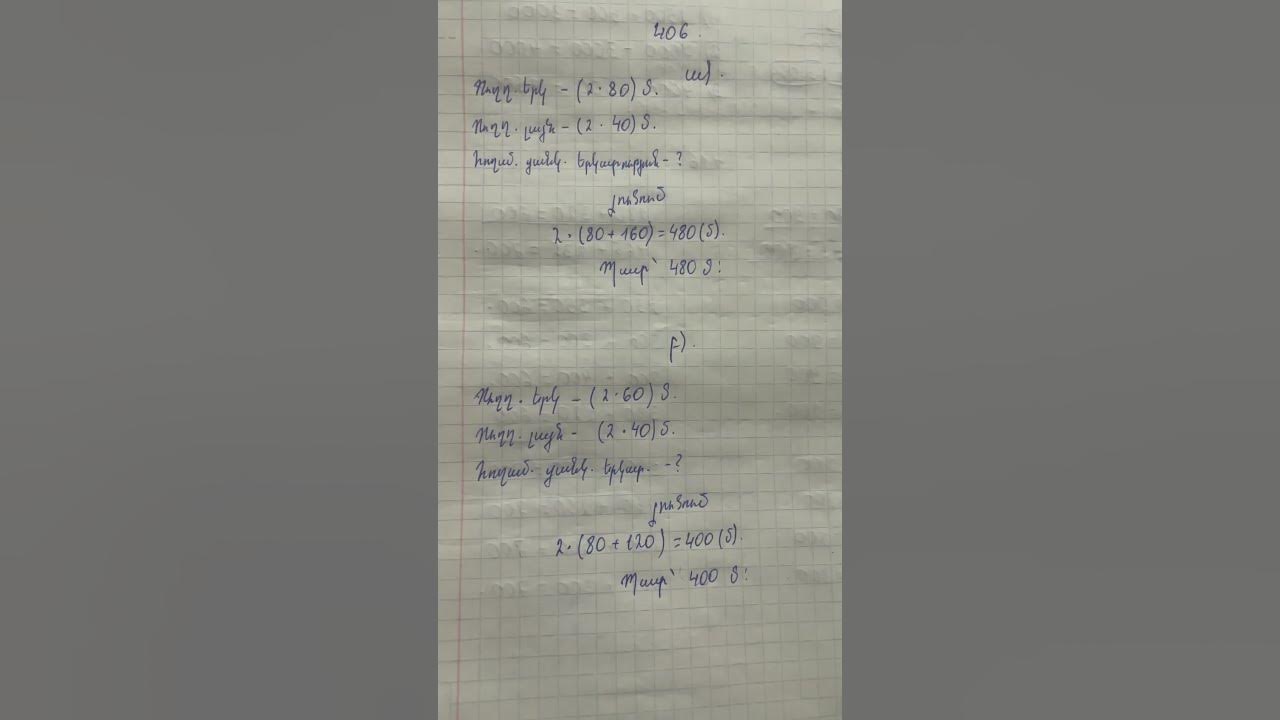 406.
ա).
Ուղղ. երկ – (2·80) մ.
Ուղղ. լայն – (2·40) մ.
Հողամ. ցանկ. երկարություն – ?
Լուծում
2·(80+160)=480(մ).
Պատ՝ 480 մ:
բ).
Ուղղ. երկ – (2·60) մ.
Ուղղ. լայն – (2·40) մ.
Հողամ. ցանկ. երկար. – ?
Լուծում
2·(80+120)=400(մ).
Պատ՝ 400 մ: